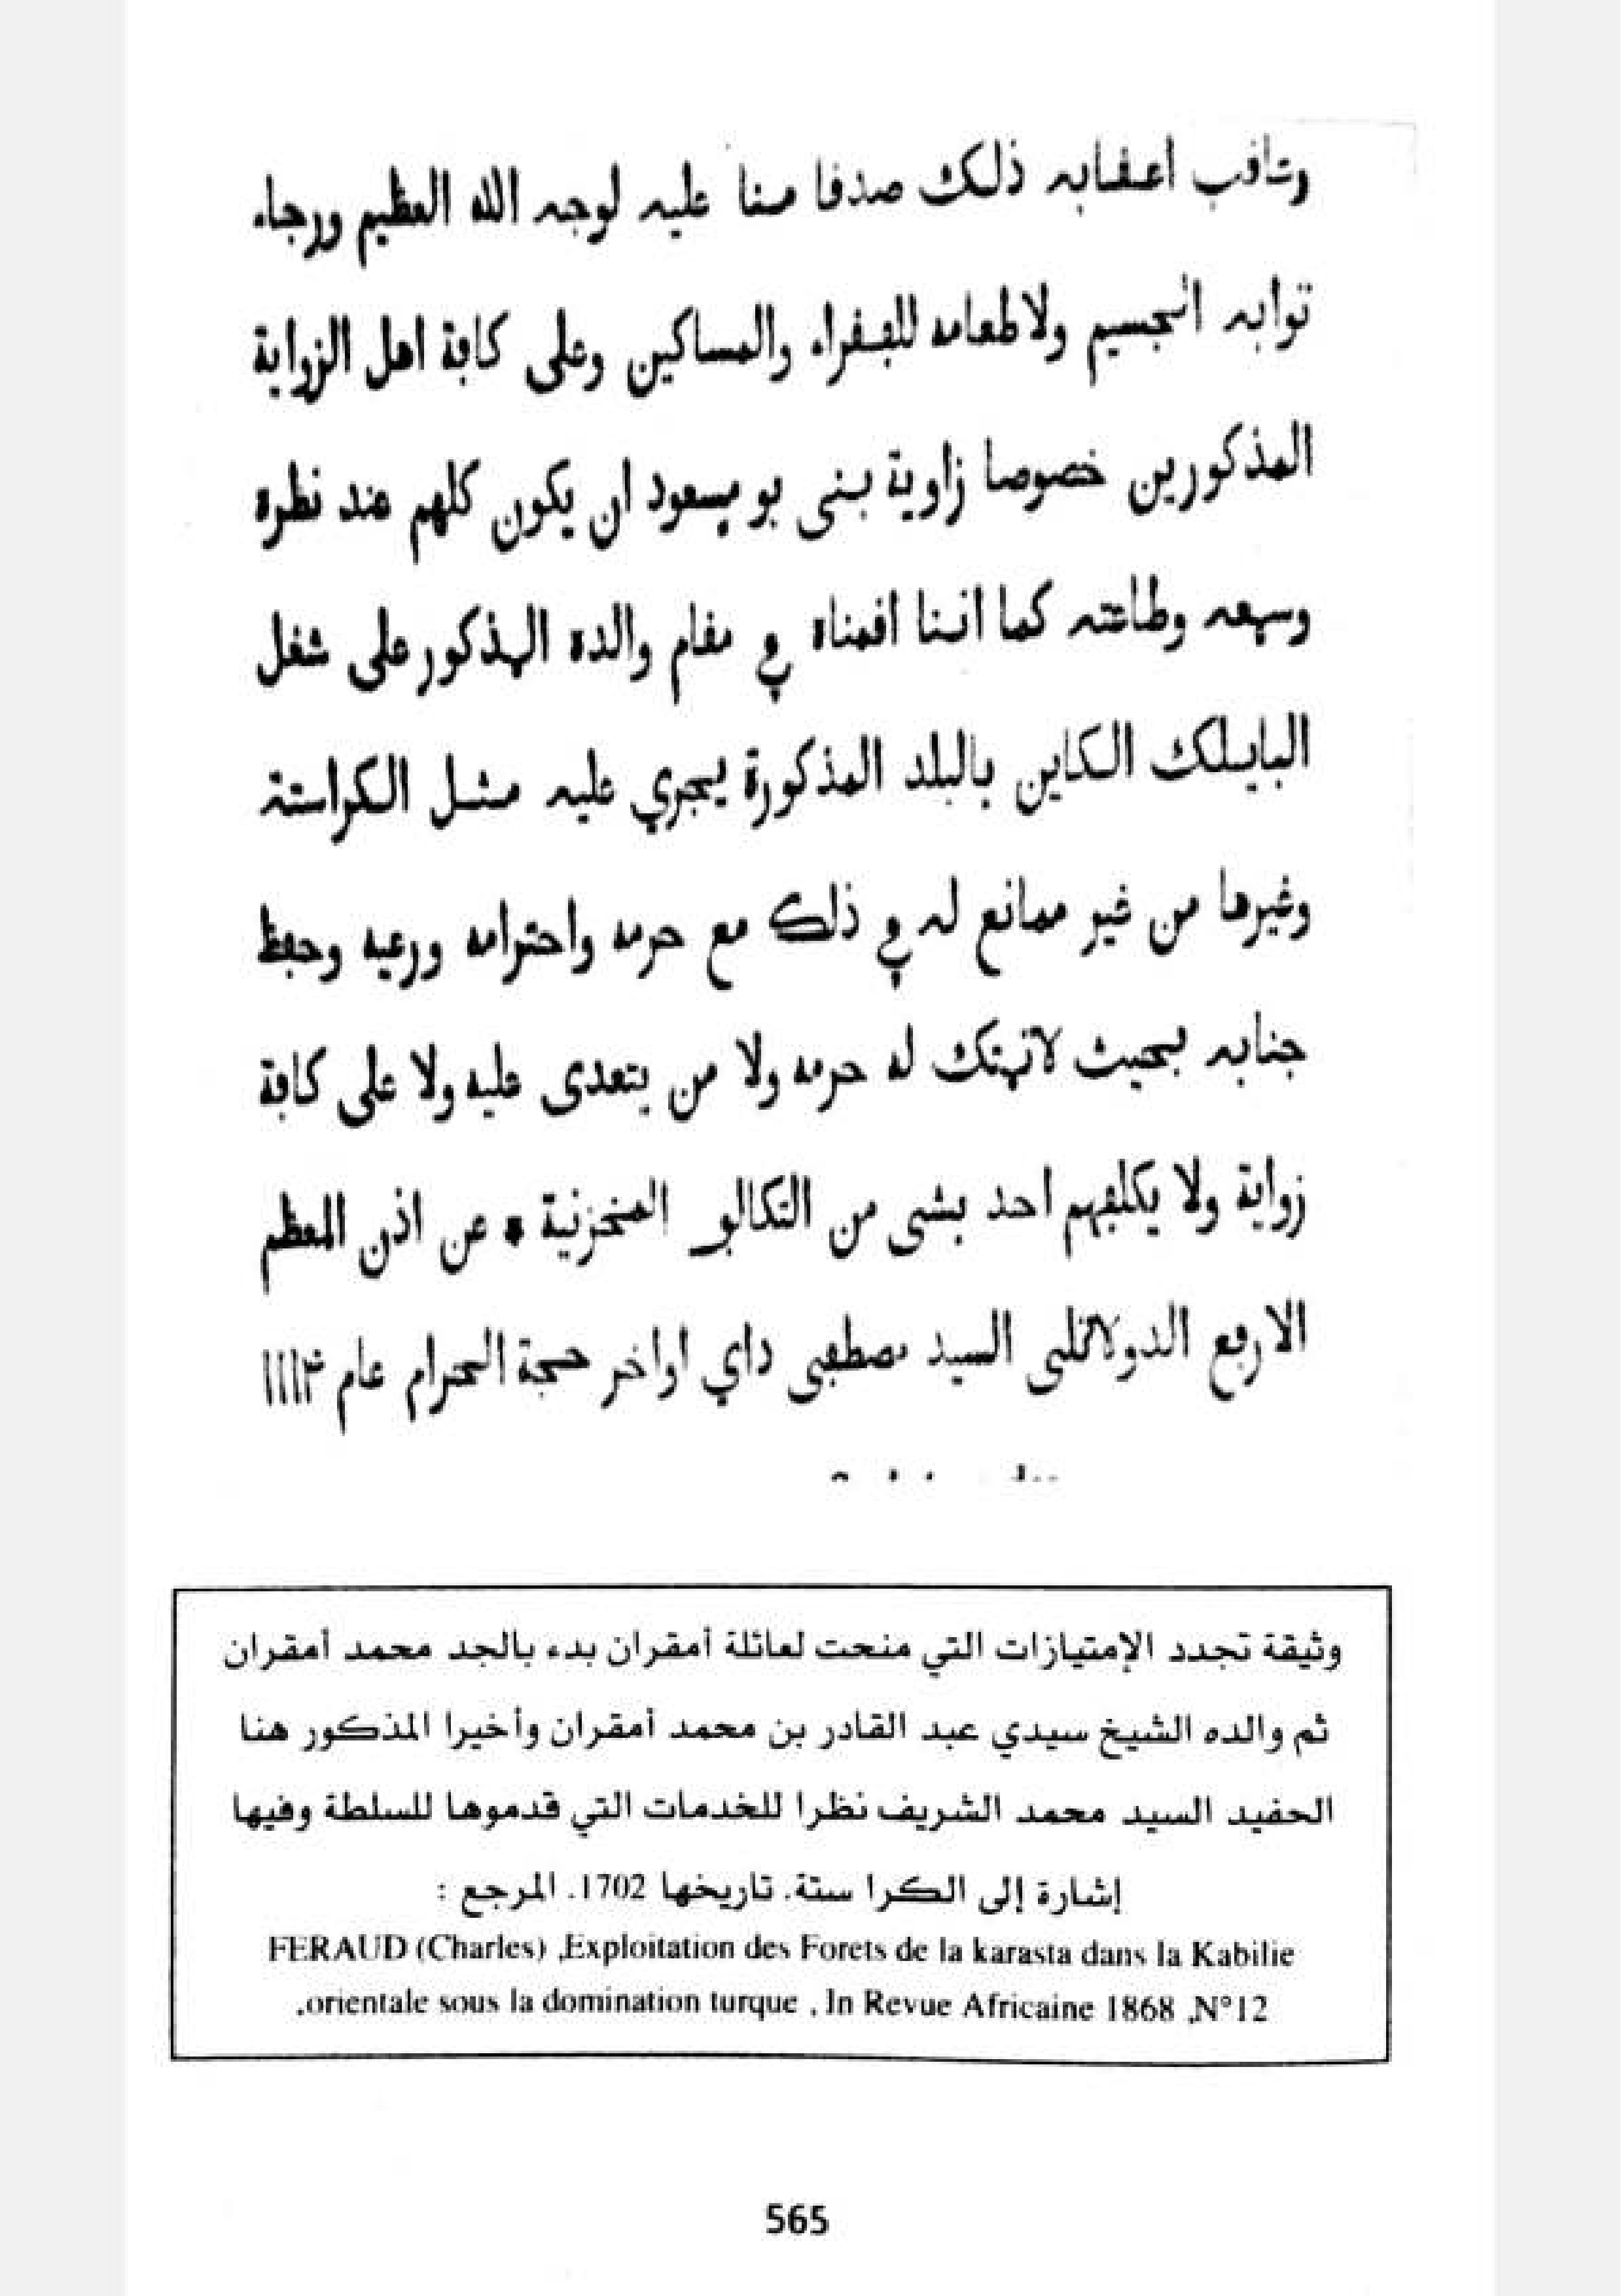 وتافب اعفابه ذلك صدفا منا عليه لوجه الله العظيم ورجاء
ثوابه الجسيم ولاطعامه للفقراء والمساكين وعلى كافة اهل الزواية
المذكورين خصوصا زاوية بنى بو مسعود ان يكون كلهم عند نظره
وسمعه وطاعته كما اننا افمناه في مفام والده المذكور على شغل
البايلك الكاين بالبلد المذكورة يجري عليه مثل الكراستة
وغيرها من غير ممانع له في ذلك مع حرمه واحترامه ورعيه وحفظ
جنابه بحيث لاتهتك له حرمه ولا من يتعدى عليه ولا على كافة
زواية ولا يكلفهم احد بشى من التكالف المخزنية * عن اذن المعظم
الارفع الدولاتلى السيد مصطفى داي اواخر حجة الحرام عام ١١١٣
وثيقة تجدد الإمتيازات التي منحت لعائلة أمقران بدء بالجد محمد أمقران
ثم والده الشيخ سيدي عبد القادر بن محمد أمقران وأخيرا المذكور هنا
الحفيد السيد محمد الشريف نظرا للخدمات التي قدموها للسلطة وفيها
إشارة إلى الكرا ستة. تاريخها 1702. المرجع :
FERAUD (Charles) ,Exploitation des Forets de la karasta dans la Kabilie
.orientale sous la domination turque , In Revue Africaine 1868 ,N°12
565